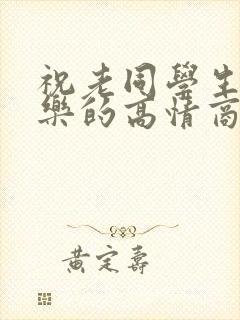 祝老同學生
樂的高情商
黄定壽